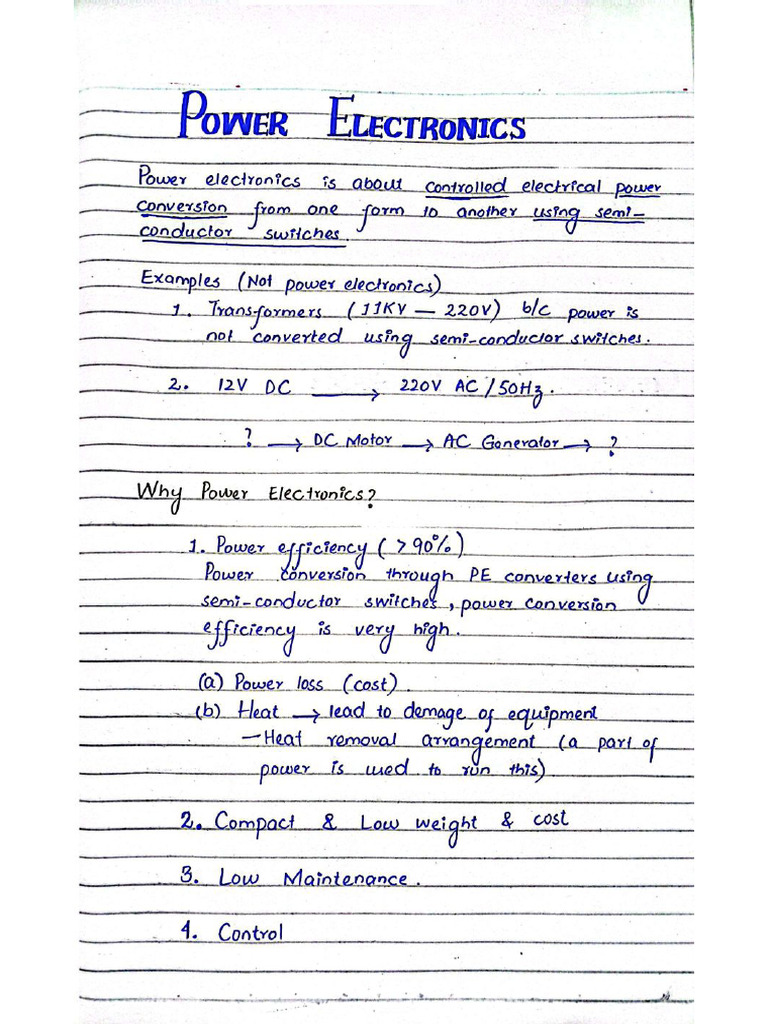 POWER ELECTRONICS
Power electronics is about controlled electrical power
conversion from one form to another using semi-
conductor switches.
Examples (Not power electronics)
1. Transformers (11KV — 220V) b/c power is
not converted using semi-conductor switches.
2. 12V DC ⟶ 220V AC/50Hz.
? → DC Motor → AC Generator → ?
Why Power Electronics?
1. Power efficiency (>90%)
Power conversion through PE converters using
semi-conductor switches, power conversion
efficiency is very high.
(a) Power loss (cost).
(b) Heat → lead to demage of equipment
— Heat removal arrangement (a part of
power is used to run this)
2. Compact & Low weight & cost
3. Low Maintenance.
4. Control